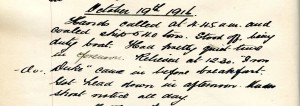 October 19th 1916
Hands called at 4.45 a.m. and
coaled ship 540 tons. Stood off, being
duty boat. Had pretty quiet time
in forenoon. Relieved at 12.30. "Iron
-do- Duke" came in before breakfast.
Got head down in afternoon. Under
short notice all day.